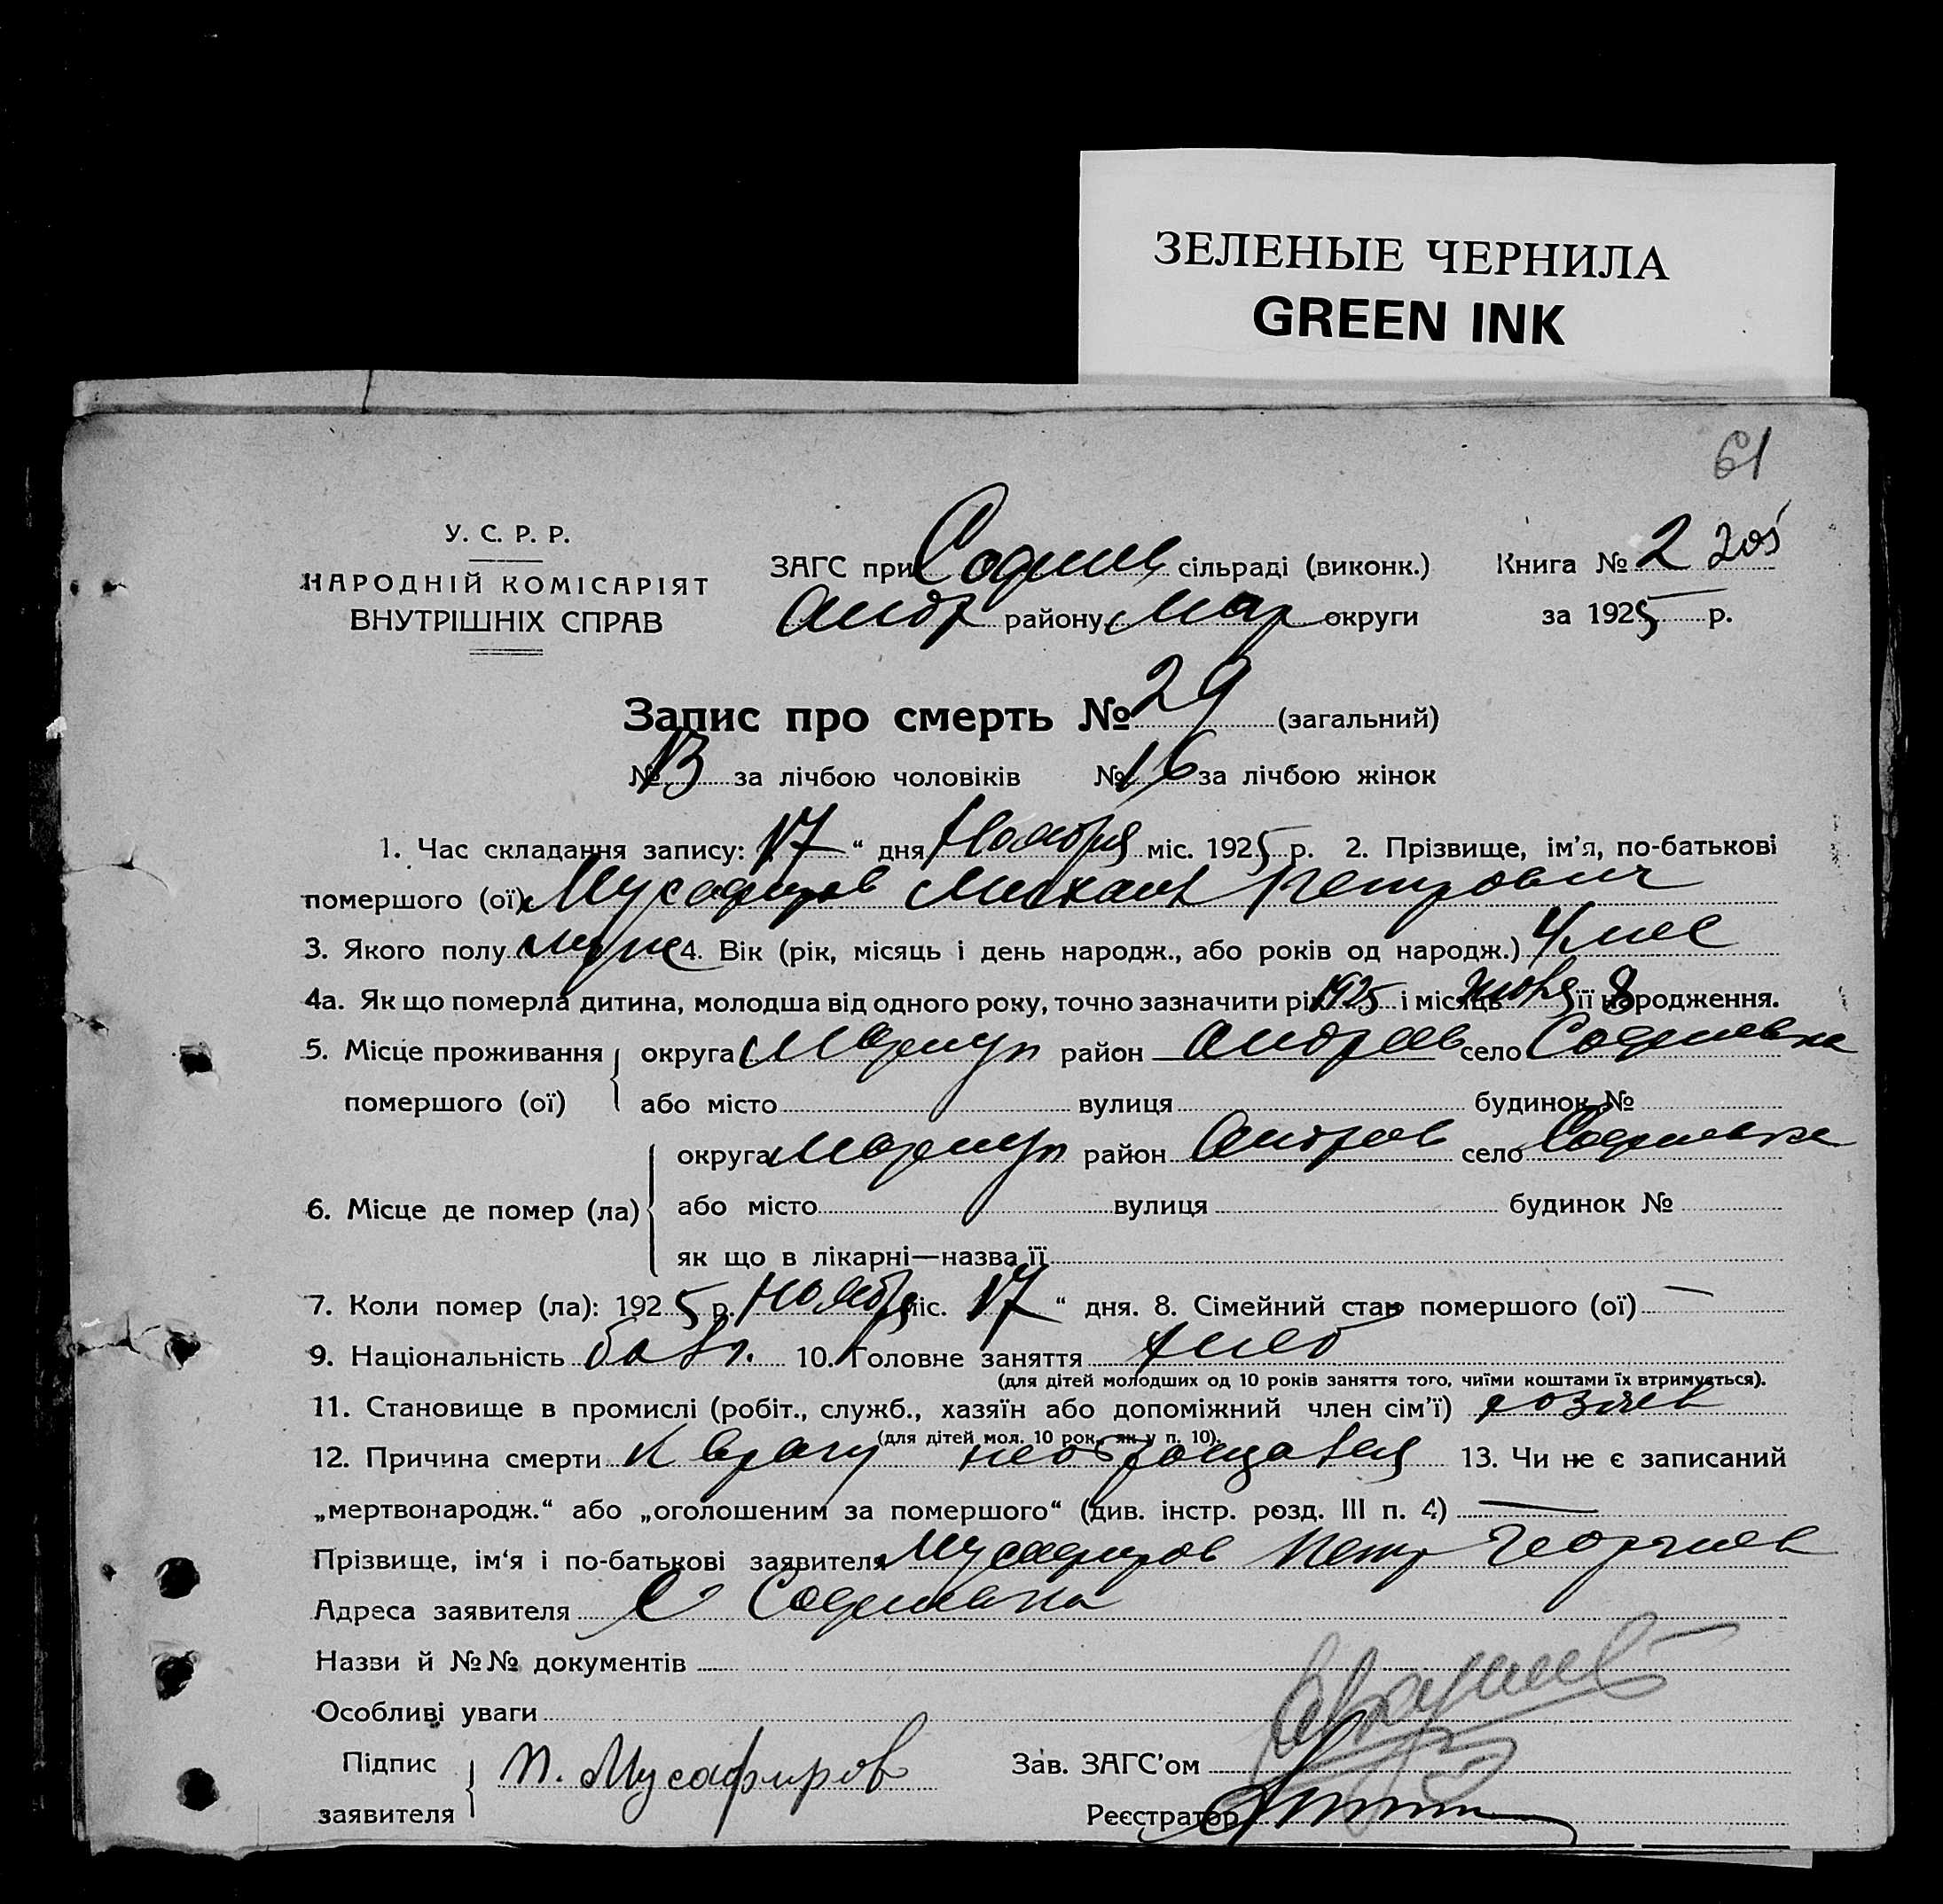 ЗЕЛЕНЫЕ ЧЕРНИЛА
GREEN INK
61
У. С. Р. Р.
НАРОДНІЙ КОМІСАРІЯТ
ВНУТРІШНІХ СПРАВ
ЗАГС при Софиев сільраді (виконк.)
Андр району Мар округи
Книга № 2
за 1925 р.
Запис про смерть № 29 (загальний)
№ 13 за лічбою чоловіків № 16 за лічбою жінок
1. Час складання запису: 17 “ дня Ноября міс. 1925 р. 2. Прізвище, ім’я, по-батькові
помершого (ої) Мусафиров Михаил Петрович
3. Якого полу муж 4. Вік (рік, місяць і день народж., або років од народж.) 4 мес
4а. Як що померла дитина, молодша від одного року, точно зазначити рік 1925 і місяць 8 її народження.
5. Місце проживання помершого (ої) округа Мариуп район Андреев село Софиевка
або місто вулиця будинок №
6. Місце де помер (ла) округа Мариуп район Андреев село Софиевка
або місто вулиця будинок №
як що в лікарні—назва її
7. Коли помер (ла): 1925 р. Ноября міс. 17 “ дня. 8. Сімейний стан помершого (ої) —
9. Національність болг. 10. Головне заняття хлеб
(для дітей молодших од 10 років заняття того, чиїми коштами їх втримується).
11. Становище в промислі (робіт., служб., хазяїн або допоміжний член сім’ї) хозяев
(для дітей мол. 10 рок. як у п. 10).
12. Причина смерти К врачу необращався 13. Чи не є записаний
„мертвонародж.“ або „оголошеним за помершого“ (див. інстр. розд. III п. 4) —
Прізвище, ім‘я і по-батькові заявителя Мусафиров Петр Георгиев
Адреса заявителя С Софиевка
Назви й №№ документів
Особливі уваги
Підпис заявителя П. Мусафиров
Зав. ЗАГС’ом
Реєстратор